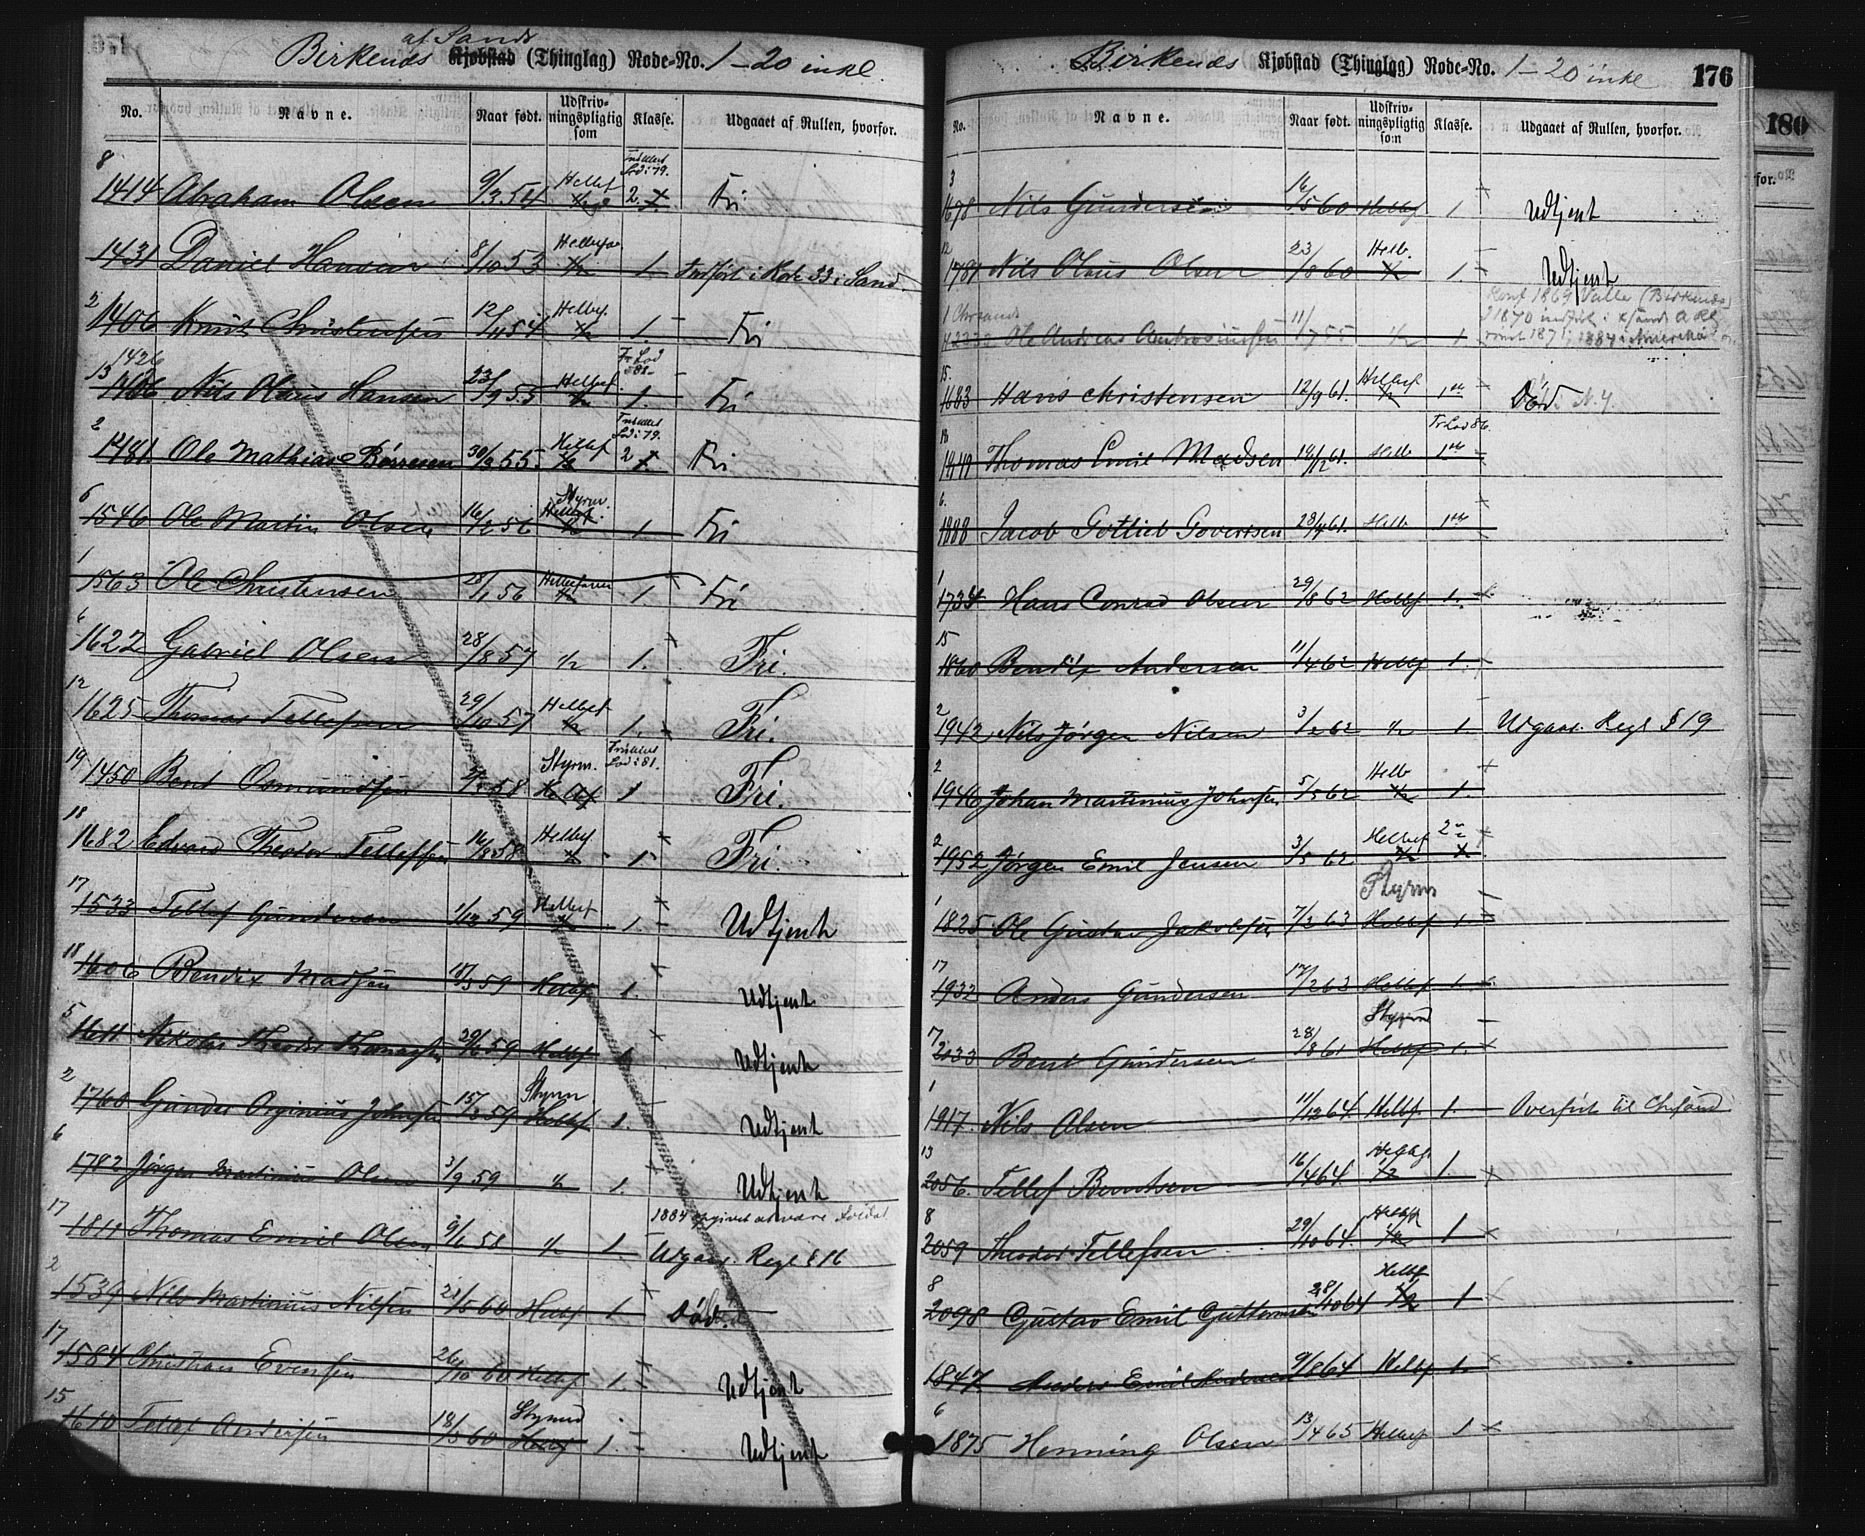 Birkenes af Sands Kjøbstad (Thinglag) Rode-No. 1–20 inkl.
No. Navne. Naar født. Udskrivningspligtig som Klasse. Udgaaet af Rullen, hvorfor.
8 1414 Abraham Olsen 9/3 54 Helbef 2 Fri
1431 Daniel Hansen 8/10 53 1/2 1 Indført i Rode 33 i Sand.
2 1406 Knut Christensen 12/4 54 Helbef. 1/2 1 Fri
1426
13 1406 Nils Olaus Hansen 23/9 55 Helbef. 1/2 1 Fri
2 1481 Ole Mathias Børresen 30/9 55. Helbef 1/2 2 Fri
6 1546 Ole Martin Olsen 16/2 56 Styrm. Helbef. 1 Fri
1 1563 Ole Christensen 28/1 56 1/2 1. Fri
6 1622 Gabriel Olsen 28/8 57 1/2 1. Fri.
12 1625 Thomas Tellefsen 29/10 57 Helbef 1/2 1. Fri.
19 1450 Bent Osmundsen 58 Styrm. 1 Fri.
18 1682 Edvard Theodor Tellefsen 16/8 58 Helbef. 1 Fri.
17 1533 Tellef Gundersen 1/12 59 Helbef 1. Udtjent
18 1606 Bendix Madsen 18/3 59 Helbef 1. Udtjent
5 1611 Nikolai Theodor Thomassen 59 Helbef 1 Udtjent
2 1760 Gunder Orginius Johnsen 15/2 59 Styrm Helbef 1. Udtjent
6 1782 Jørgen Martinius Olsen 3/9 59 1/2 1. Udtjent
1884 opgivet at være Soldat
17 1811 Thomas Emil Olsen 9/6 58 1/2 1. Udgaar. Regl § 16
2 1539 Nils Martinius Nilsen 21/5 60 Helbf 1 Død.
17 1584 Christian Evensen 26/10 60 Helbef 1. Udtjent
15 1610 Tellef Andersen 18/5 60 Styrmd Helbf 1 Udtjent
Birkenes Kjøbstad (Thinglag) Rode-No. 1–20 inkl 176
No. Navne. Naar født. Udskrivningspligtig som Klasse. Udgaaet af Rullen, hvorfor.
3 1678 Nils Gundersen 16/5 60 Helbf 1 Udtjent
12 1781 Nils Olaus Olsen 23/8 60 Helb. 1. Udtjent
Konf 1869 Valle (Birkenes)
1870 indfl. i Xsand A Kl
Ole Andreas Ambrosiussen 11/7 55 1/2 1 1884 i Amerika
15. 1683 Hans Christensen 12/9 61. Helbef 1/2 1ste Død. N.Y.
18 Thomas Emil Madsen 61. Helb 1ste Fr Lod 86.
6. 1888 Jacob Gotlieb Govertsen 23/4 61. Helb 1ste
1 1734 Hans Conrad Olsen 29/8 62 Helbf 1.
15 1860 Bendix Andersen 11/4 62 Helbf 1.
2 1942 Nils Jørgen Nilsen 3/2 62 1/2 1 Udgaar. Regl § 19
2 1946 Johan Martinius Johnsen 5/5 62 Helb 1/2 1.
2 1952 Jørgen Emil Jensen 3/5 62 Helbef 2
1 1825 Ole Gustav Jakobsen 7/2 63 Styrm Helbf 1
17 1932 Anders Gundersen 17/2 63 Helbf 1.
7 2033 Bent Gundersen 28/8 61 Styrmd Helbf 1.
1 1917. Nils Olsen 11/12 64. Helbf. 1. Overført til Chrsand
13 2056. Tellef Berntsen 16/4 64 1/2 1
8 2059 Theodor Tellefsen 29/10 64. 1/2 1
8 2098 Gustav Emil Guttormsen 28/10 64 Helbf 1/2 1
1847 Anders Emil Andersen 9/8 64 Helbf 1.
6 1875 Henning Olsen 13/4 65 Helbef 1
180